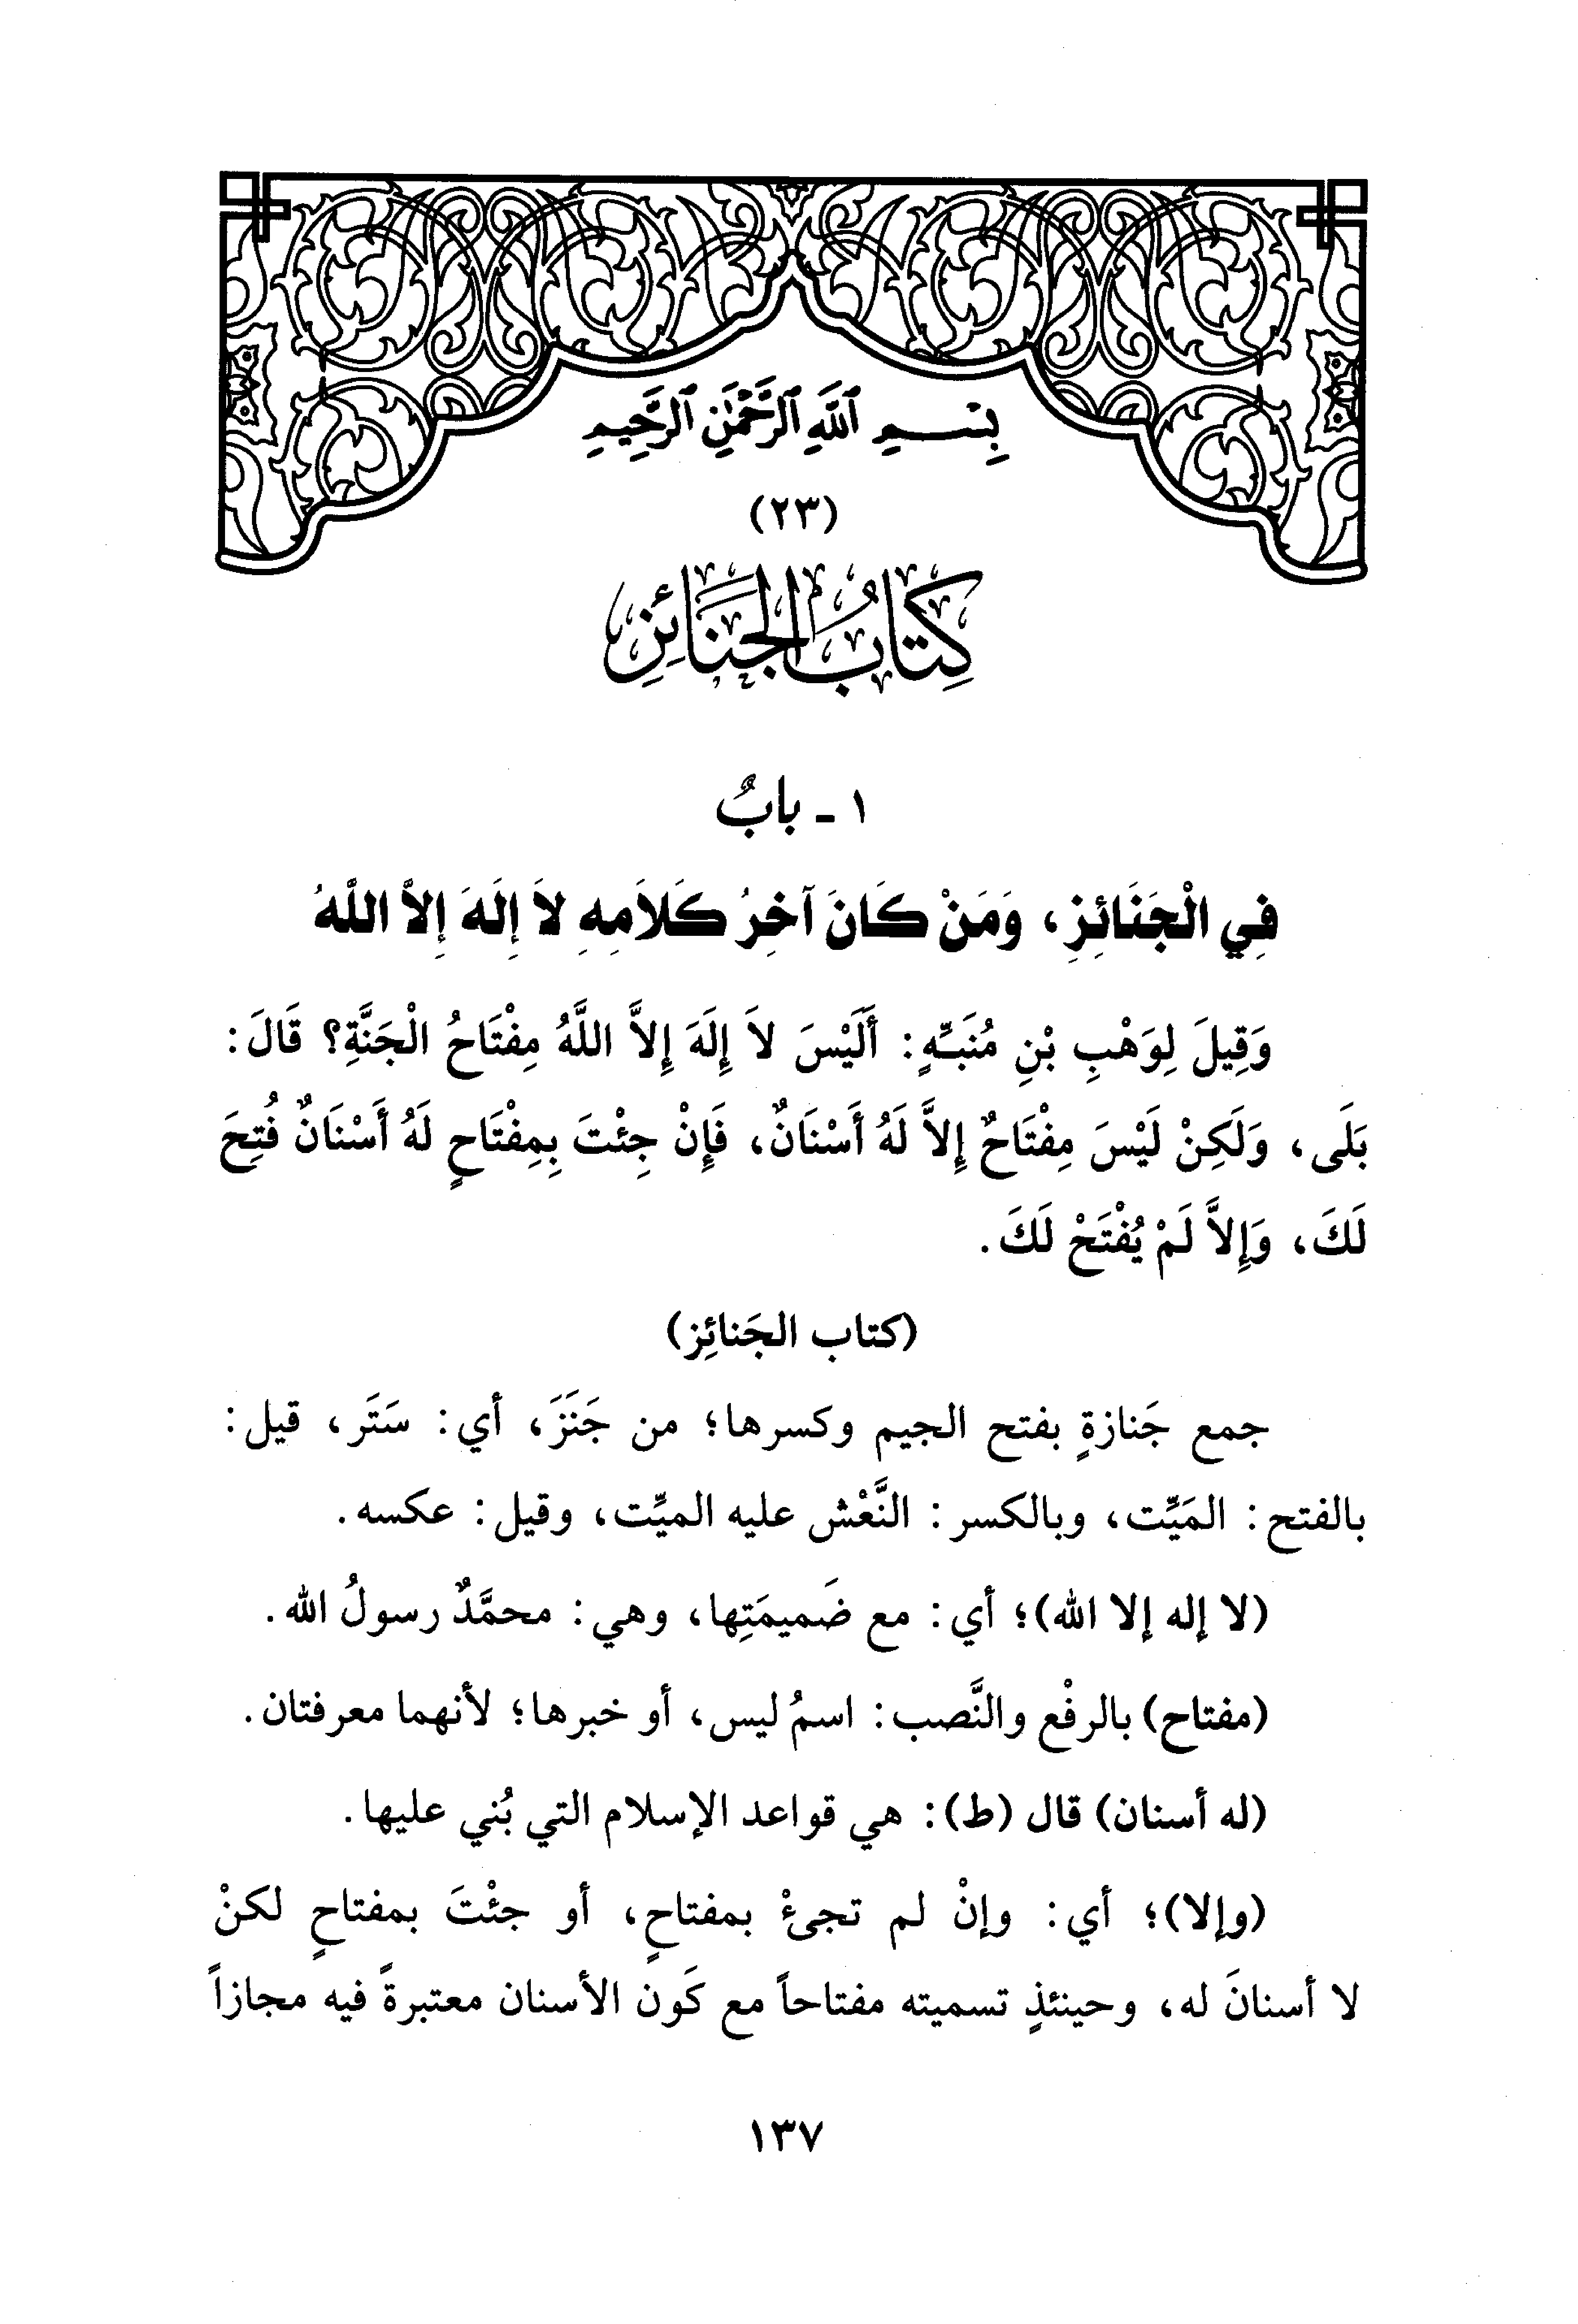 بِسْمِ ٱللَّهِ ٱلرَّحْمَٰنِ ٱلرَّحِيمِ
(٢٣)
كِتَابُ الجَنَائِزِ
١ ـ بابٌ
فِي الْجَنَائِزِ، وَمَنْ كَانَ آخِرُ كَلاَمِهِ لاَ إِلَهَ إِلاَّ اللَّهُ
وَقِيلَ لِوَهْبِ بْنِ مُنَبِّهٍ: أَلَيْسَ لاَ إِلَهَ إِلاَّ اللَّهُ مِفْتَاحُ الْجَنَّةِ؟ قَالَ:
بَلَى، وَلَكِنْ لَيْسَ مِفْتَاحٌ إِلاَّ لَهُ أَسْنَانٌ، فَإِنْ جِئْتَ بِمِفْتَاحٍ لَهُ أَسْنَانٌ فُتِحَ
لَكَ، وَإِلاَّ لَمْ يُفْتَحْ لَكَ.
(كتاب الجَنائِز)
جمع جَنازةٍ بفتح الجيم وكسرها؛ من جَنَزَ، أي: سَتَر، قيل:
بالفتح: المَيِّت، وبالكسر: النَّعْش عليه الميِّت، وقيل: عكسه.
(لا إله إلا الله)؛ أي: مع ضَميمَتِها، وهي: محمَّدٌ رسولُ الله.
(مفتاح) بالرفْع والنَّصب: اسمُ ليس، أو خبرها؛ لأنهما معرفتان.
(له أسنان) قال (ط): هي قواعد الإسلام التي بُني عليها.
(وإلا)؛ أي: وإنْ لم تجىءْ بمفتاحٍ، أو جئْتَ بمفتاحٍ لكنْ
لا أسنانَ له، وحينئذٍ تسميته مفتاحاً مع كَون الأسنان معتبرةً فيه مجازاً
١٣٧